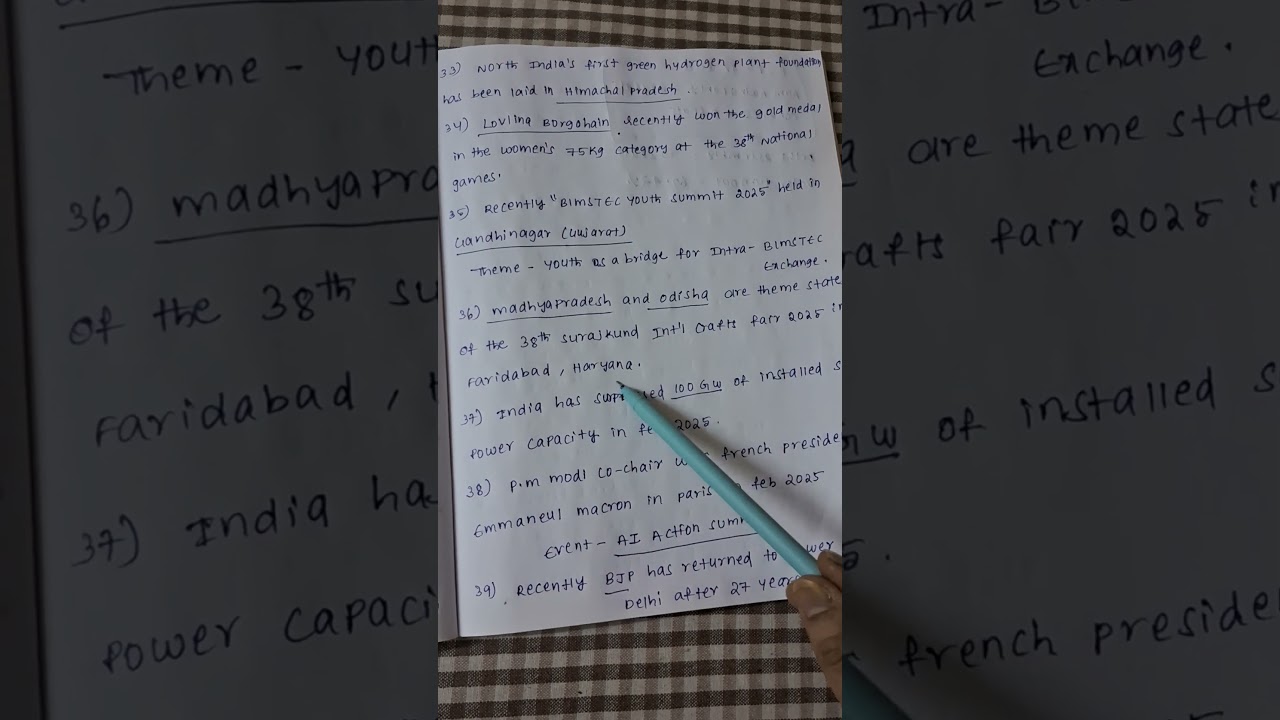 33) North India's first green hydrogen plant foundation
has been laid in Himachal Pradesh.
34) Lovlina Borgohain recently won the gold medal
in the women's 75kg category at the 38th National
games.
35) Recently "BIMSTEC youth summit 2025" held in
Gandhinagar (Gujarat)
Theme - youth as a bridge for Intra- BIMSTEC
Exchange.
36) madhyapradesh and odisha are theme state
of the 38th surajkund Int'l crafts fair 2025 in
Faridabad, Haryana.
37) India has 100 GW of installed
power capacity in feb 2025.
38) P.m modi co-chair french
Emmaneul macron in paris feb 2025
Event - AI Action
39) Recently BJP has returned to power
Delhi after 27 years